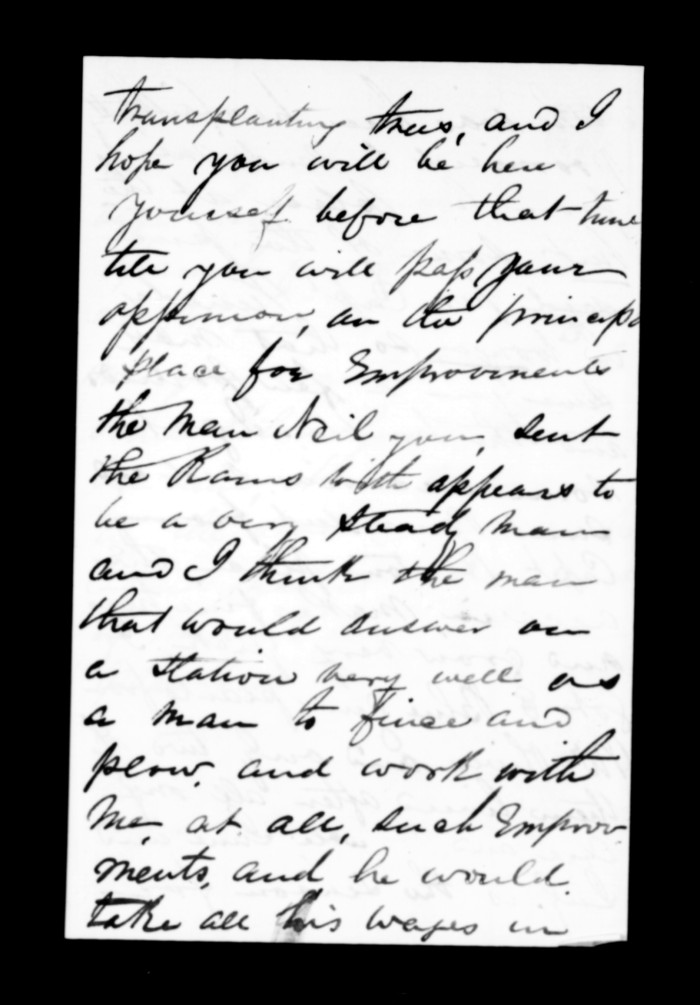 transplanting trees, and I
hope you will be here
yourself before that time
till you will pass your
oppinion, on the principa
place for Improvements
the man Neil you, sent
the Rams with appears to
be a very steady man
and I think the man
that would answer on
a station very well as
a man to fince and
plow, and work with
me, at all, such Improv-
ments, and he would
take all his wages in